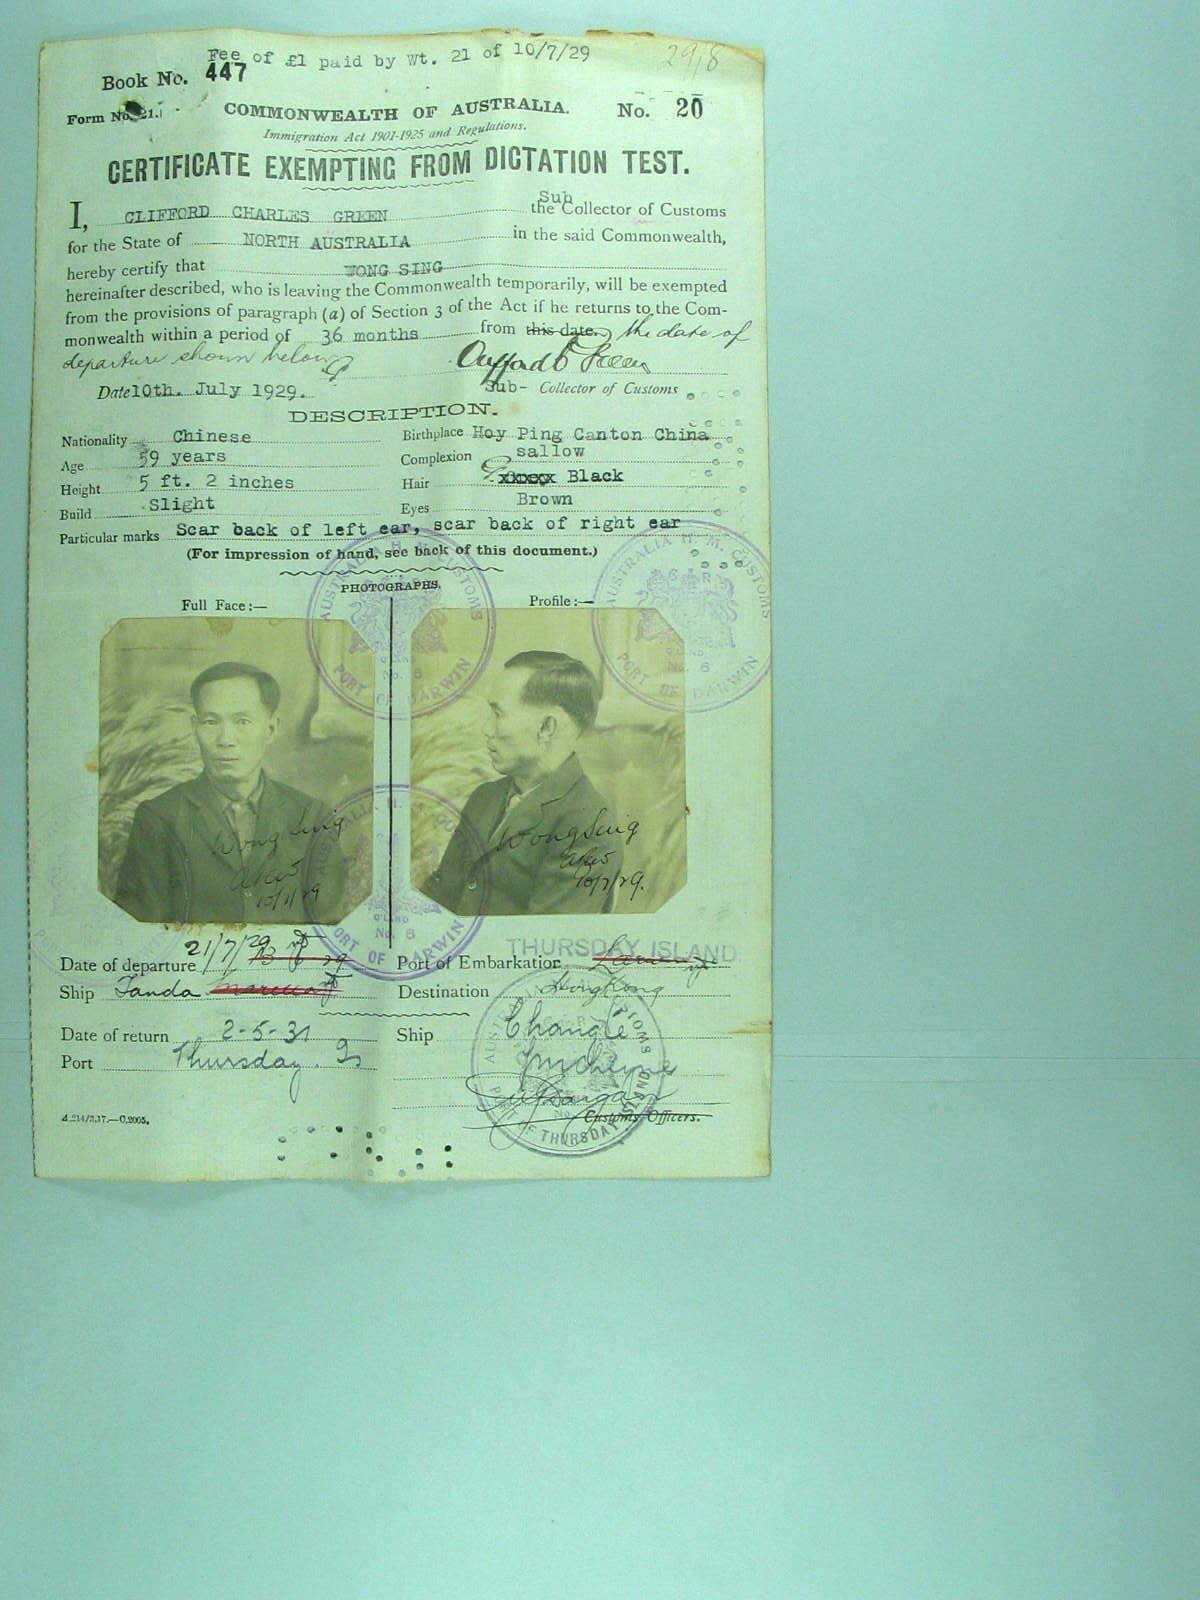 Fee of £1 paid by Wt. 21 of 10/7/29
29/8
Book No. 447
Form No. 21.
COMMONWEALTH OF AUSTRALIA.
No. 20
Immigration Act 1901-1925 and Regulations.
CERTIFICATE EXEMPTING FROM DICTATION TEST.
I, CLIFFORD CHARLES GREEN the Sub Collector of Customs
for the State of NORTH AUSTRALIA in the said Commonwealth,
hereby certify that WONG SING
hereinafter described, who is leaving the Commonwealth temporarily, will be exempted
from the provisions of paragraph (a) of Section 3 of the Act if he returns to the Com-
monwealth within a period of 36 months from this date. the date of
departure shown below
Clifford C Green
Date 10th. July 1929.
Sub- Collector of Customs
DESCRIPTION.
Nationality Chinese
Birthplace Hoy Ping Canton China
Age 59 years
Complexion sallow
Height 5 ft. 2 inches
Hair xxxxxx Black
Build Slight
Eyes Brown
Particular marks Scar back of left ear, scar back of right ear
(For impression of hand, see back of this document.)
PHOTOGRAPHS.
Full Face:—
Profile:—
AUSTRALIA H. M. CUSTOMS
G R
Q'LAND
No. 6
PORT OF DARWIN
AUSTRALIA H. M. CUSTOMS
G R
Q'LAND
No. 6
PORT OF DARWIN
Wong Sing
10/7/29
Wong Sing
10/7/29.
Q'LAND
No. 6
PORT OF DARWIN
THURSDAY ISLAND
Date of departure 21/7/29
Port of Embarkation
Ship Tanda
Destination Hong Kong
Date of return 2-5-31
Ship Changte
Port Thursday Is
PORT OF THURSDAY ISLAND
Customs Officers.
A.214/3.17.—C.2005.